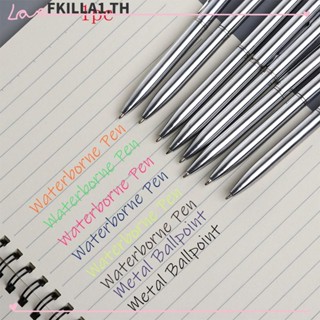 FKILLA1.TH
1pc
Waterborne Pen
Waterborne Pen
Waterborne Pen
Waterborne Pen
Waterborne Pen
Waterborne Pen
Metal Ballpoint
Metal Ballpoint